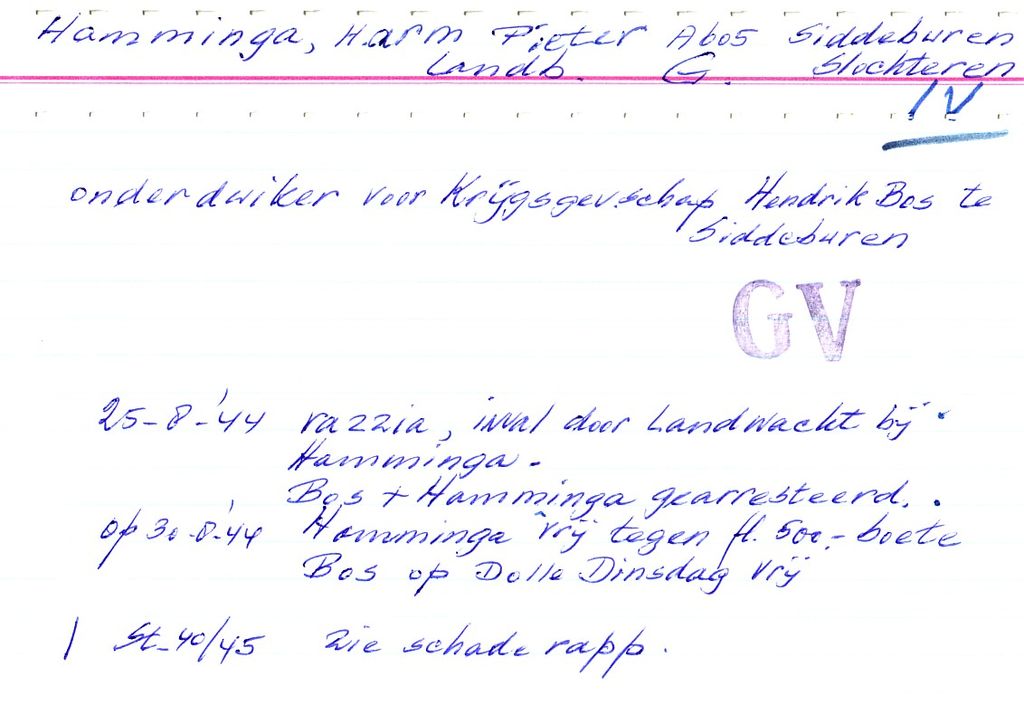 Hamminga, Harm Pieter A605 Siddeburen
Landb. G. Slochteren
IV
onderdwiker voor Krijgsgevschap Hendrik Bos te
Siddeburen
GV
25-8-'44 razzia, inval door Landwacht bij
Hamminga.
Bos + Hamminga gearresteerd.
op 30-8-'44 Hamminga vrij tegen fl. 500,- boete
Bos op Dolle Dinsdag vrij
St-40/45 zie schade rapp.